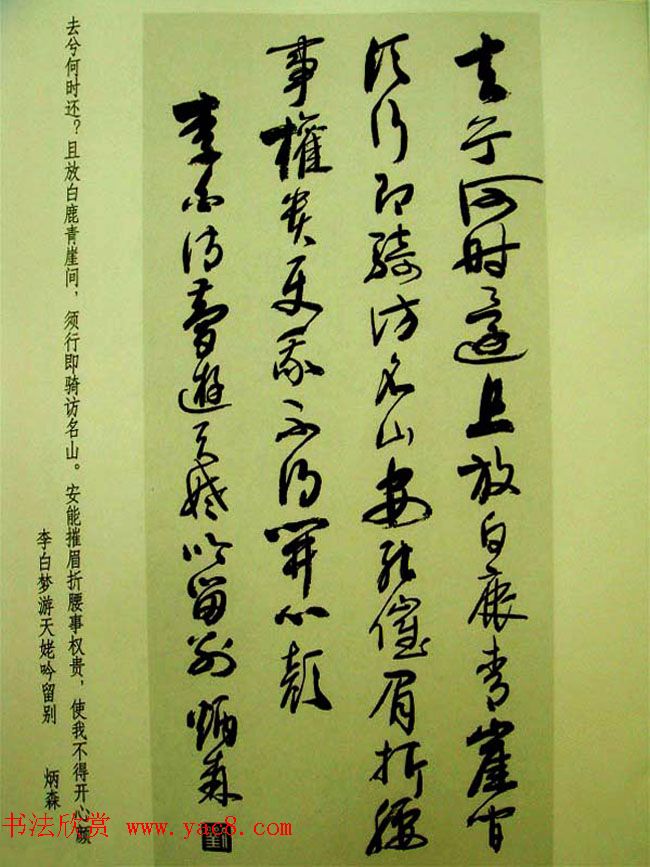 去兮何時還且放白鹿青崖间
须行即骑访名山安能摧眉折腰
事權贵使我不得開心颜
李白诗夢遊天姥吟留别 炳森
去兮何时还？且放白鹿青崖间，须行即骑访名山。安能摧眉折腰事权贵，使我不得开心颜
李白梦游天姥吟留别 炳森
书法欣赏 www.yac8.com